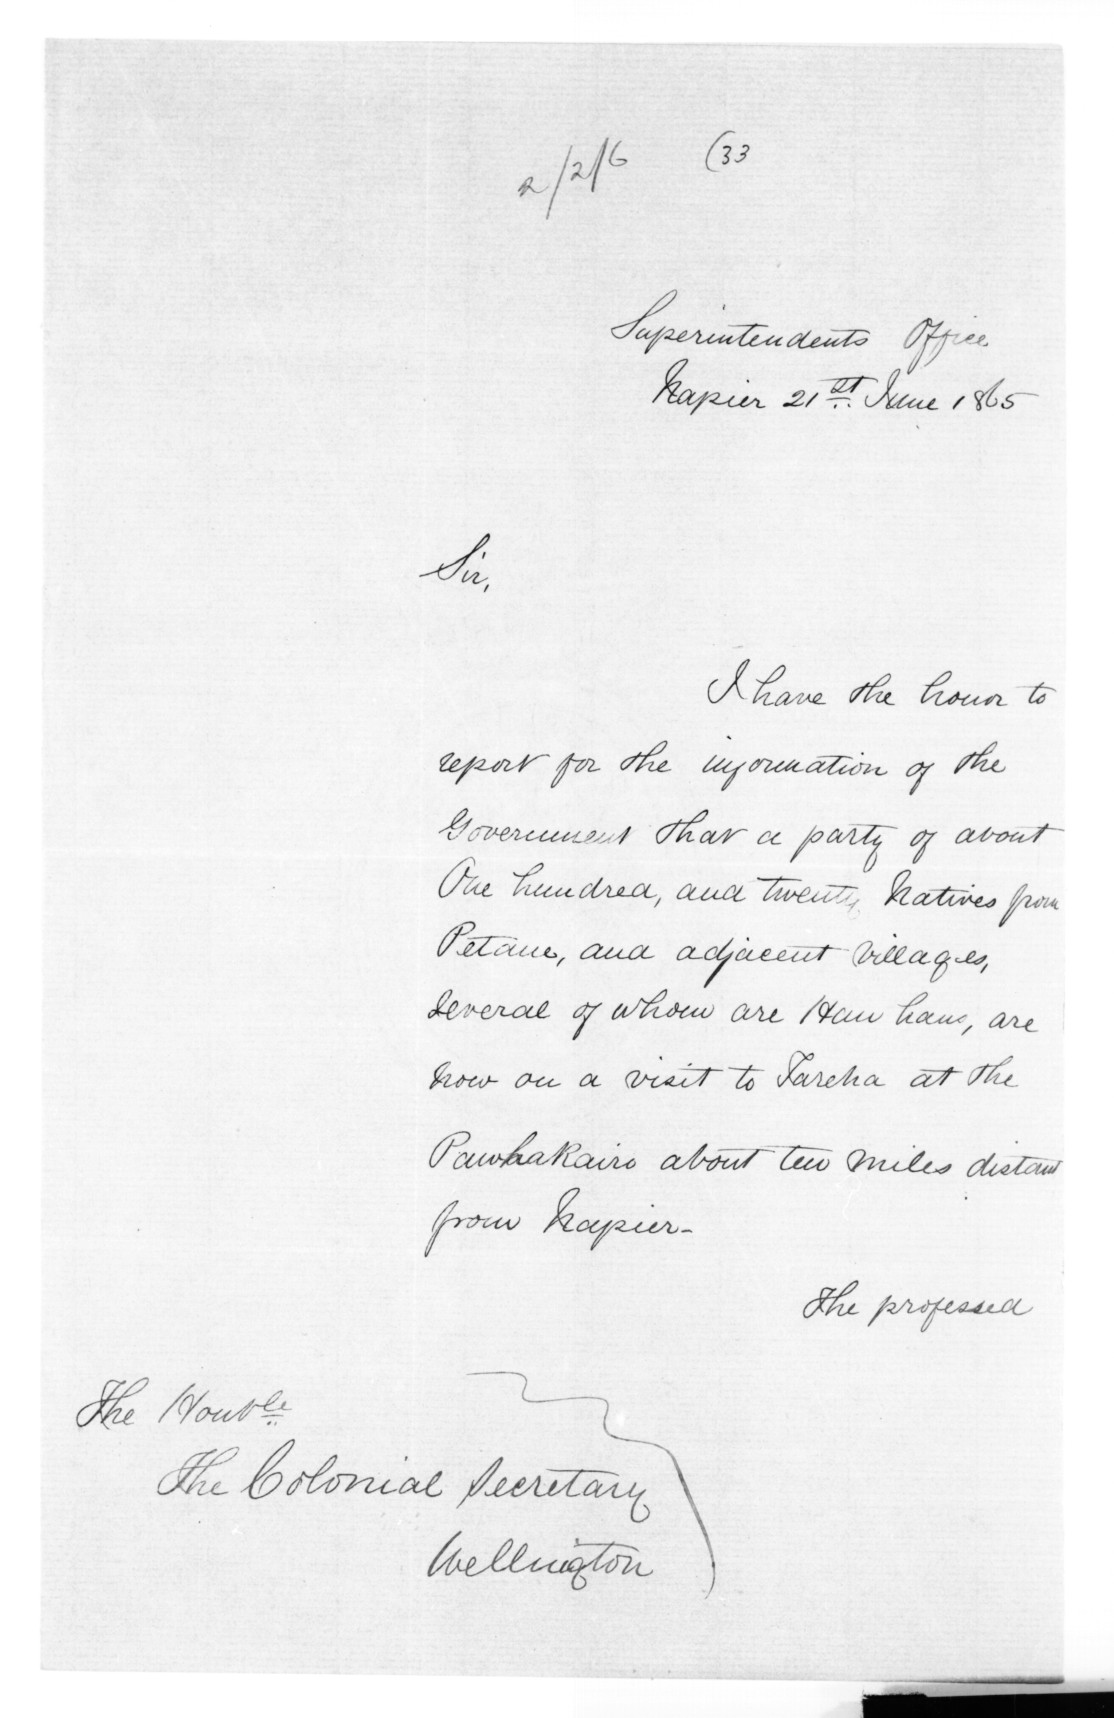 2/2/6 (33
Superintendents Office
Napier 21st June 1865
Sir,
I have the honor to
report for the information of the
Government that a party of about
One hundred, and twenty Natives from
Petane, and adjacent Villages,
Several of whom are Hau haus, are
now on a visit to Tareha at the
Pawhakairo about ten miles distant
from Napier-
The professed
The Honble
The Colonial Secretary
Wellington